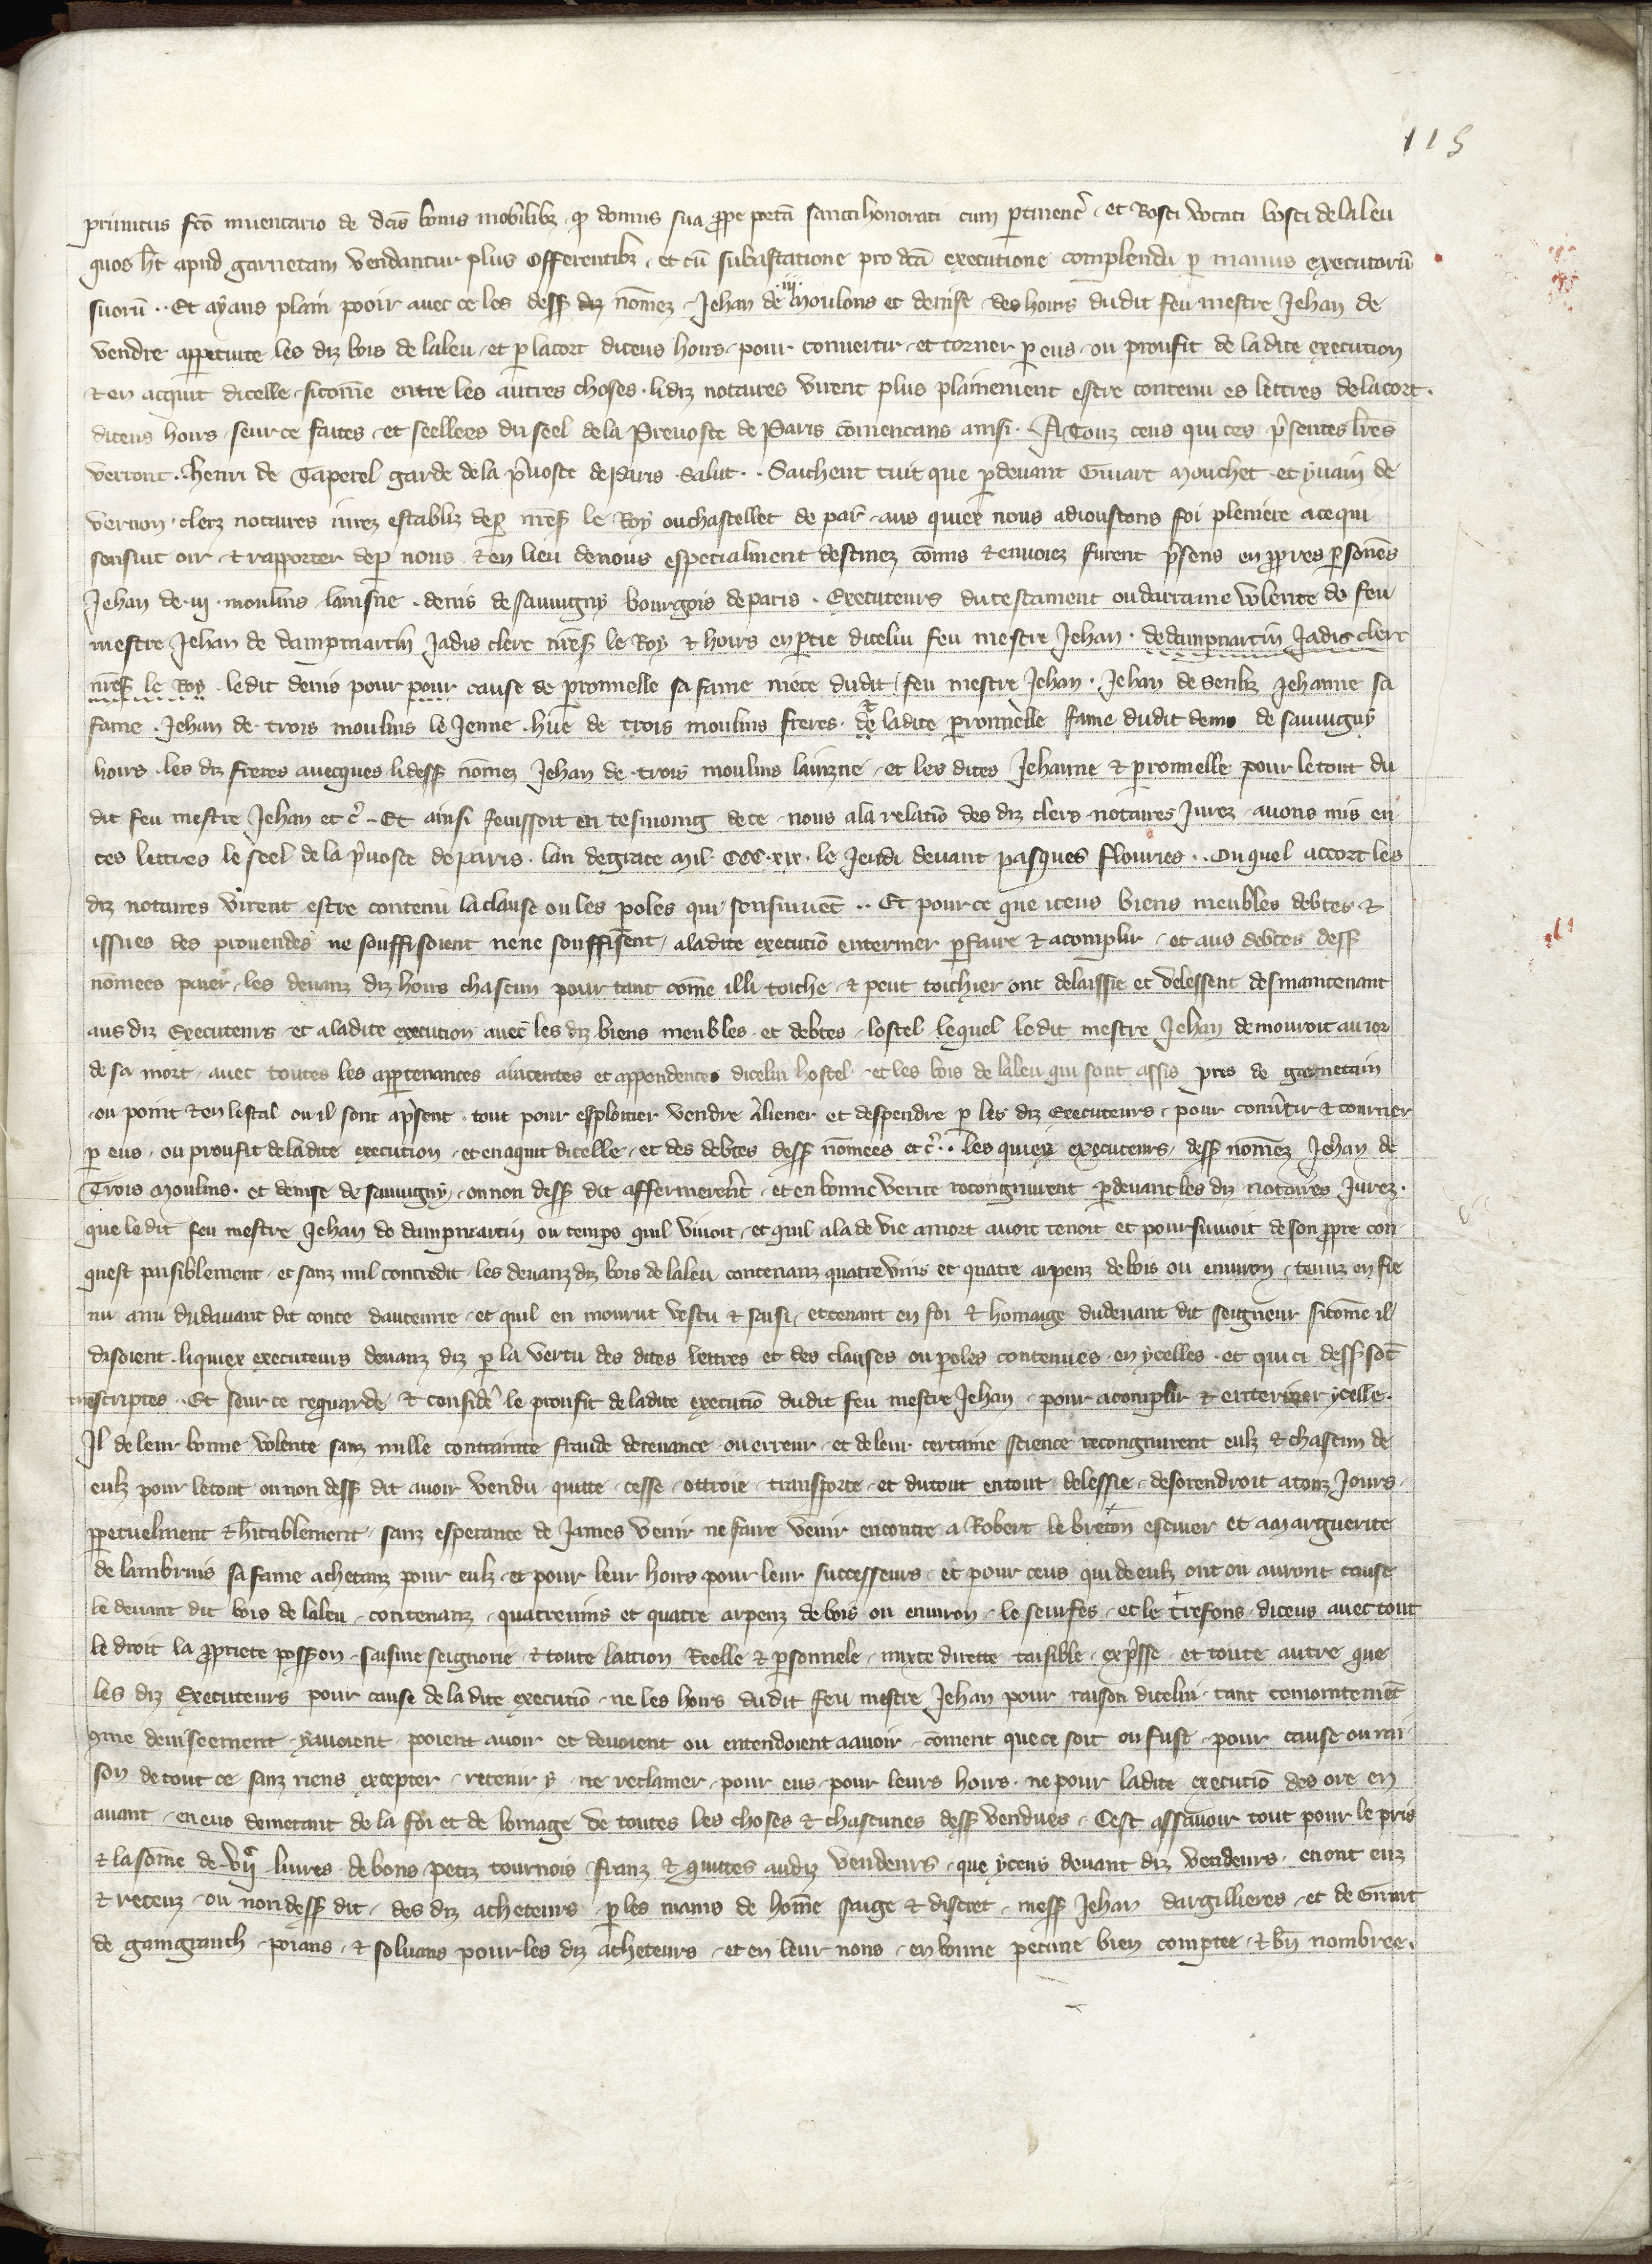 115
primitus fcō inuentario de dcīs bonis mobilibz . qͥ domus sua ꝓpe portā sancti honorati cum ꝑtinenc̄ . et Bosci vocati bosci de laleu
quos hēt apud garnetam vendantur plus offerentibz . et cū subastatione pro dcā executione complenda ꝑ manus executorū
suorū .. Et ayans plain pooir auec ce les dess diz nōmez . Jehan de .iij. Moulons et denise . des hoirs dudit feu mestre Jehan de
vendre appetuite les diz bois de laleu . et ꝑ lacort diceus hoirs . pour conuertir . et torner ꝑ eus . ou proufit de ladite execution
⁊ en acquit dicelle . sicomē entre les autres choses . lidiz notaires virent plus plainement estre contenu es lettres de lacort .
diceus hoirs . seur ce faites . et seellees du seel de la Preuoste de Paris comencans ainsi . A Touz ceus qui ces p̄sentes lrēs
verront .. henri de Taperel garde de la p̄uoste de Paris . Salut .. Saichent tuit que ꝑdeuant Giuart Mouchet . et yuain de
vernon . clerz notaires iurez establiz deꝑ nrēs le Roy ou chastellet de par̄ . aus quiex nous adioustons foi pleniere a ce qui
sensuit oir . ⁊ rapporter deꝑ nous . ⁊ en lieu de nous especialment destinez com̄is ⁊ enuoiez furent p̄sens en ꝓpres ꝑsones
Jehan de .iij. moulins lainsne . denis de sauuigny bourgois de paris . Executeurs du testament ou darraine volente de feu
mestre Jehan de dampmartin Jadis clerc nrēs le Roy ⁊ hoirs en ꝑtie dicelui feu mestre Jehan . de dampmartin Jadis clerc
nrēs le Roy . ledit denis pour pour cause de ꝑronnelle sa fame niece dudit feu mestre Jehan . Jehan de Senliz Jehanne sa
fame . Jehan de trois moulins le Jenne . hue de trois moulins freres . ⁊ de ladite ꝑronnelle fame dudit denis de sauuigny
hoirs . les diz freres auecques lidess nōmez Jehan de trois moulins lainzne . et les dites Jehanne ⁊ ꝑronnelle pour letout du
dit feu mestre Jehan et c̄ .. Et ainsi feinssoit en tesmoing de ce . nous ala relatiō des diz clers notaires Jurez . auons mis en
ces lettres le seel de la p̄uoste de paris . lan de grace mil . CCC . xix . le Jeudi deuant pasques flouries .. Ou quel accort les
diz notaires virent estre contenu la clause ou les poles qui sensiuuēt .. Et pour ce que iceus biens meubles debtes ⁊
issues des prouendes ne souffisoient nene souffisent . aladite executiō enteriner ꝑfaire ⁊ acomplir . et aus debtes dess
nōmees paier . les deuanz diz hoirs chascun pour tant cōme illi toiche . ⁊ peut toichier ont delaissie et delessent des maintenant
aus diz Executeurs . et aladite execution auec les diz biens meubles . et debtes . lostel . lequel ledit mestre Jehan demouroit au ior
de sa mort . auec toutes les apꝑtenances aiacentes et appendences dicelui hostel . et les bois de laleu qui sont assis pres de garnetain
ou point ⁊ en lestat ou il sont ap̄sent . tout pour esploitier vendre aliener et despendre ꝑ les diz Executeurs . pour conūtir ⁊ tourner
ꝑ eus . ou proufit de ladite execution . et en aquit dicelle . et des debtes dess nōmees et c̄ .. les quiex executeurs . dess nōmez Jehan de
Trois Moulins . et denise de sauuigny . ou non dess dit affermerēt . et en bonne verite recongnurent ꝑdeuant les diz notaires Jurez .
que ledit feu mestre Jehan de dampmartin ou temps quil viuoit . et quil ala de vie amort auoit tenoit et poursuiuoit de son ꝓpre con
quest paisiblement . et sanz nul contredit . les deuanz diz bois de laleu contenanz quatre vins et quatre arpenz de bois ou enuiron . tenuz en fie
nu a nu dudauant dit conte dauteurre . et quil en mourut vestu ⁊ saisi . et tenant en foi ⁊ homaige dudeuant dit seigneur sicomē il
disoient . liquiex executeurs deuanz diz ꝑ la vertu des dites lettres et des clauses ou poles contenues en ycelles . et qui ci dess sōt
trescriptes .. Et seur ce reguarde ⁊ considē le proufit de ladite executiō dudit feu mestre Jehan . pour acomplir ⁊ enteriner ycelle .
Il de leur bonne volente sanz nulle contrainte fraude deceuance . ou erreur . et de leur certaine science recongnurent eulz ⁊ chascun de
eulz pour letout . ou non dess dit auoir vendu . quitte . cesse . ottroie . transporte . et du tout en tout . delessie . desorendroit a touz Jours .
ꝑpetuelment ⁊ hitablement . sanz esperance de James venir ne faire venir encontre a Robert le breton escuier et a Marguerite
de lambruis sa fame achetanz pour eulz . et pour leur hoirs pour leur successeurs . et pour ceus qui de eulz ont ou auront cause
le deuant dit bois de laleu . contenanz . quatreuins et quatre arpenz de bois ou enuiron . le seurfes . et le trefons . diceus auec tout
le droit la ꝓpriete possōn . saisine seignorie . ⁊ toute laction Reelle ⁊ ꝑsonnele . mixte directe taisible . exp̄sse . et toute autre que
les diz Executeurs pour cause de la dite executiō . ne les hoirs dudit feu mestre Jehan pour raison dicelui . tant comointemēt
ꝯme deuiseement . yauoient . pooient auoir et deuoient ou entendoient a auoir . cōment que ce soit ou fust . pour cause ou rai
son de tout ce sanz riens excepter . retenir y . ne reclamer . pour eus . pour leurs hoirs . ne pour ladite executiō des ore en
auant . en eus demetant de la foi et de lomage de toutes les choses ⁊ chascunes dess vendues . Cest assauoir tout pour le pris
⁊ la some de .vijͣ. liures de bons petiz tournois . franz ⁊ quittes audiz vendeurs . que yceus deuant diz vendeurs . en ont euz
⁊ receuz . ou non dess dit . des diz acheteurs . ꝑ les mains de hōme saige ⁊ discret . mess Jehan dargillieres . et de Giraut
de gaingranch . poians . ⁊ soluans pour les diz acheteurs . et en leur nons . en bonne pecune bien comptee . ⁊ bn̄ nombree .